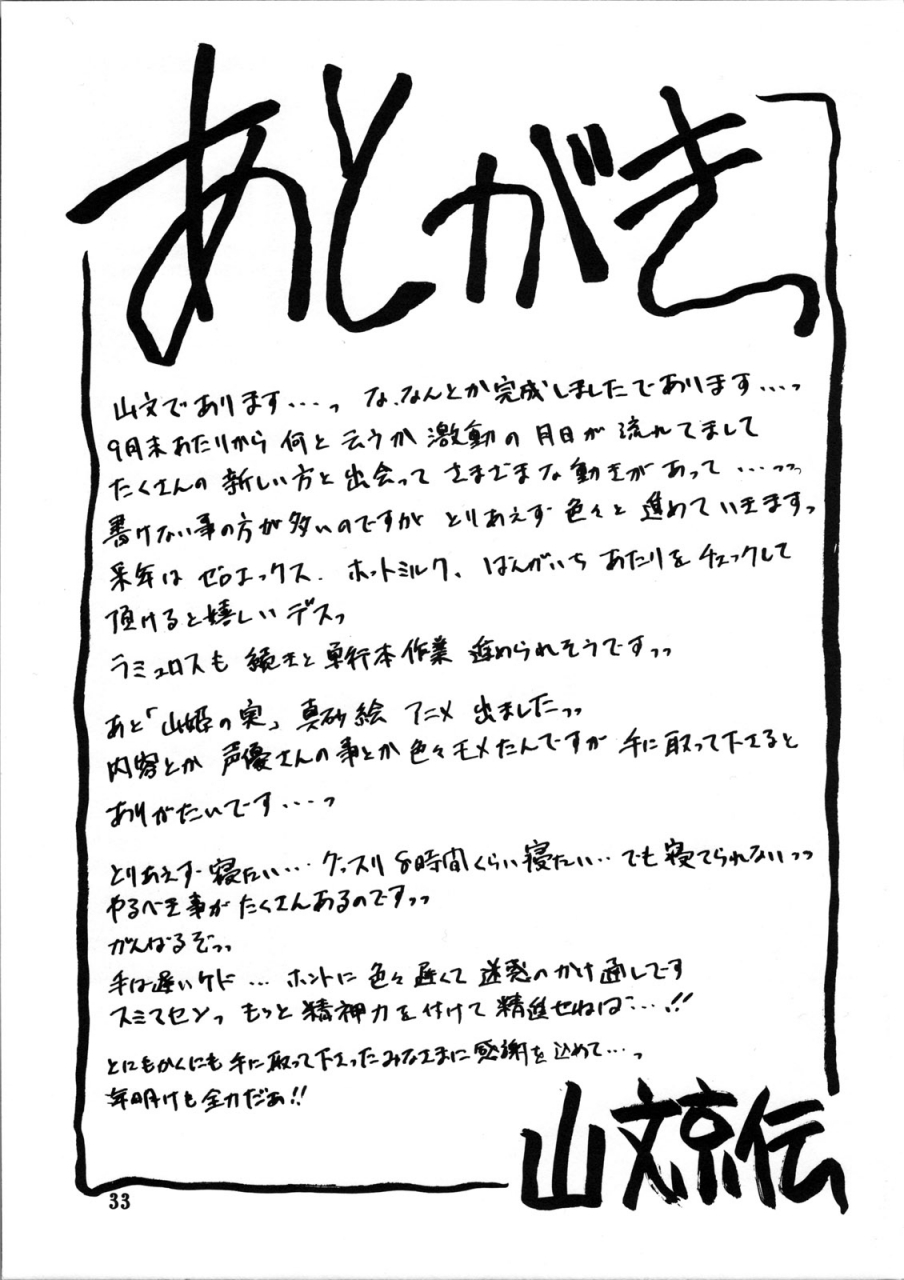 あとがきっ
山文であります…っ な、なんとか完成しましたであります…っ
9月末あたりから何と云うか激動の月日が流れてまして
たくさんの新しい方と出会ってさまざまな動きがあって…っっ
書けない事の方が多いのですがとりあえず色々と進めていきますっ
来年はゼロエックス、ホットミルク、ばんがいちあたりをチェックして
頂けると嬉しいデスっ
ラミュロスも続きと単行本作業進められそうですっっ
あと「山姫の実」真砂絵アニメ出ましたっっ
内容とか声優さんの事とか色々モメたんですが手に取って下さると
ありがたいです…っ
とりあえず寝たい…グッスリ8時間くらい寝たい…でも寝てられないっっ
やるべき事がたくさんあるのですっっ
がんばるぞっっ
手は遅いケド…ホントに色々遅くて迷惑のかけ通しです
スミマセンっ もっと精神力を付けて精進せねば…!!
とにもかくにも手に取って下さったみなさまに感謝を込めて…っ
年明けも全力だぁ!!
山文京伝
33